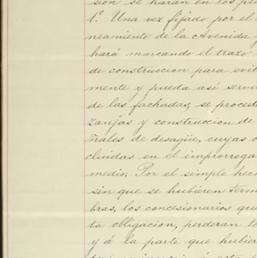 sion se harán en los pla
1ª. Una vez fijado por el
neamiento de la Avenida
hará marcando el trazo
de construccion para evit
mente y pueda así servir
de las fachadas; se proced
zanjas y construccion de
ñales de desagüe, cuyas o
cluidas en el improrroga
medio. Por el simple hech
sin que se hubieren termi
bras, los concesionarios que
ta obligacion, perderan to
y á la parte que hubier